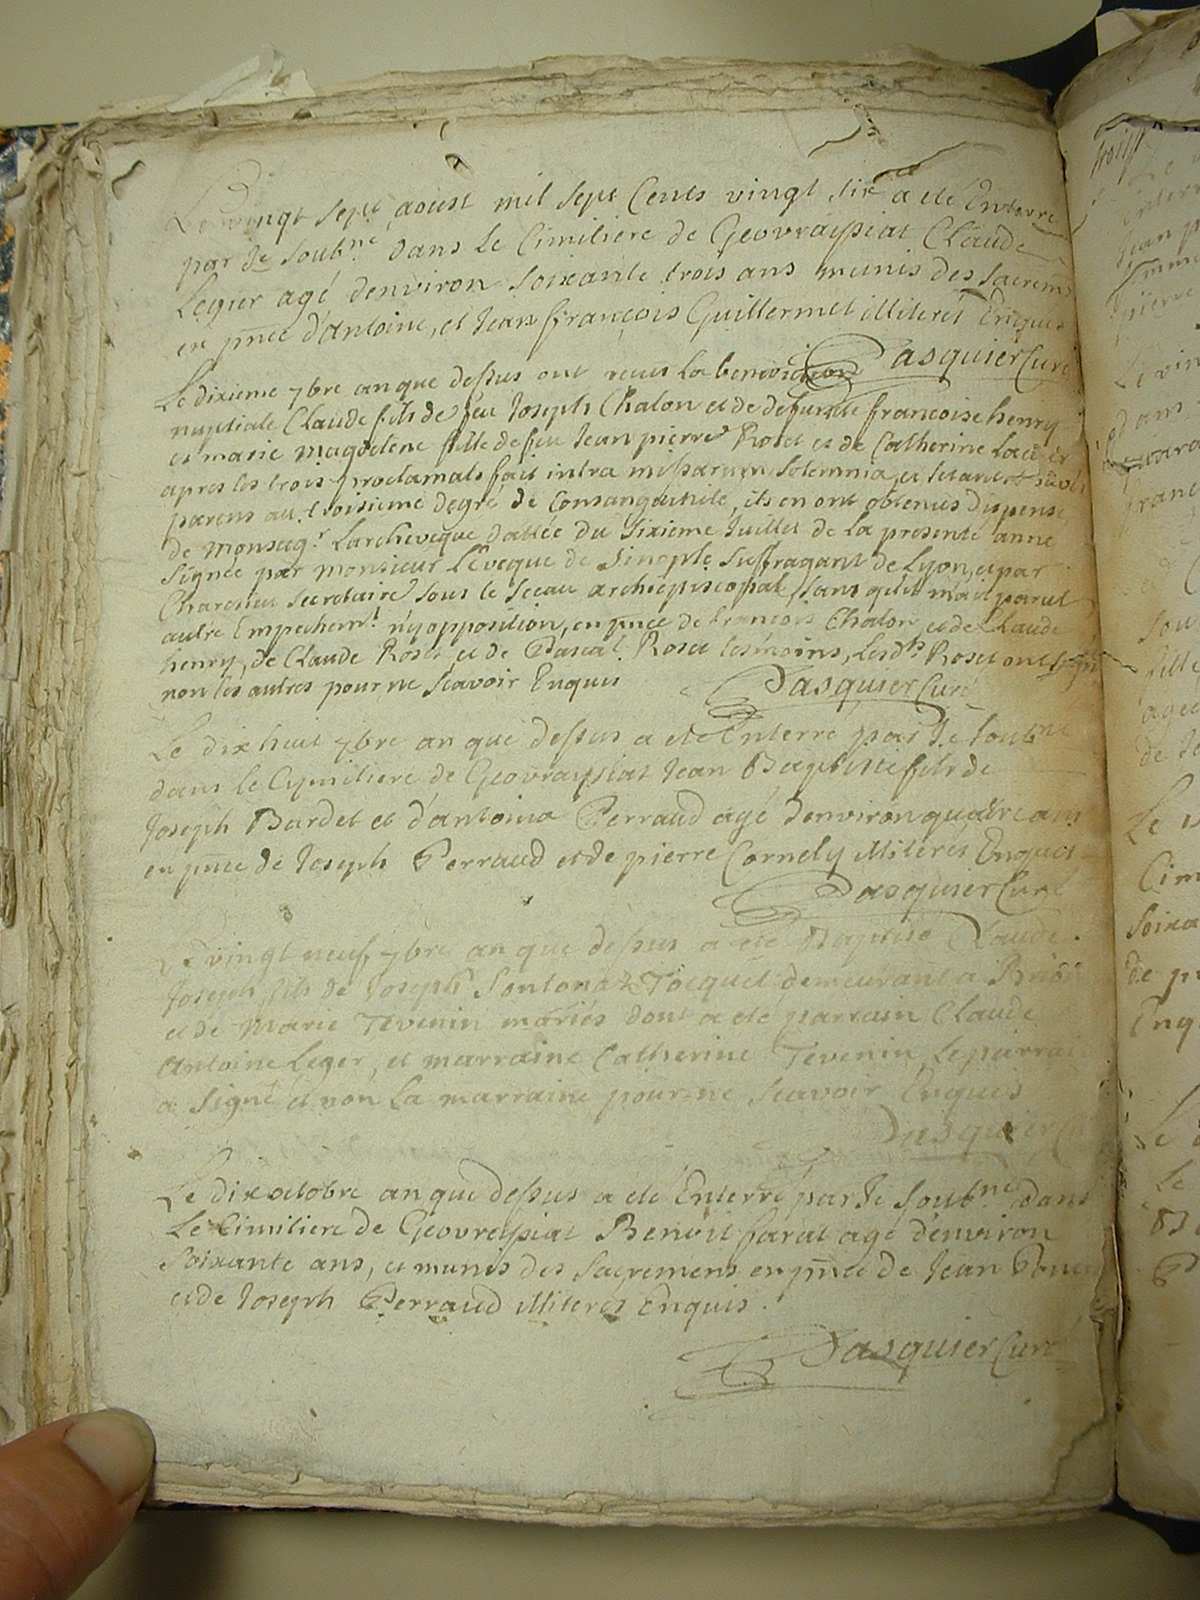 Le vingt sept aoust mil sept Cents vingt six a ete Enterre
par Je soubne. dans Le Cimitiere de Geovraissiat Claude
Leger agé denviron soixante trois ans munis des sacrem
en pnce d'antoine, et Jean françois Guillermet illiterés Enquis
Pasquier Curé
Le dixieme 7bre an que dessus ont receus La benediction
nuptiale Claude fils de feu Joseph Chalon et de defunte francoise henry
et marie magdelene fille de feu Jean pierre Roset et de Catherine
apres les trois proclamats fait intra missarum solemnia, et
parens au troisieme degré de Consanguinité, ils en ont obtenus dispense
de Monseigr. Larcheveque dattée du sixieme Juillet de La presente anne
signée par monsieur L'Eveque de Sinople suffragant de Lyon, et par
secretaire sous le sceau archiepiscopal, sans qu'il m'ait parut
autre Empechemt. ny opposition, en pnce de francois Chalon et de Claude
henry, de Claude Roset et de Pascal Roset tesmoins, Lesds. Roset ont signé
non les autres pour ne scavoir Enquis
Pasquier Curé
Le dix huit 7bre an que dessus a ete Enterré par Je soubne
dans le Cymitiere de Geovraissiat Jean Baptiste fils de
Joseph Bardet et d'antoina Perraud agé denviron quatre ans
en pnce de Joseph Perraud et de pierre Cornely illiterés Enquis
Pasquier Curé
Le vingt neuf 7bre an que dessus a ete Baptisé Claude
Joseph fils de Joseph Tocquet demeurant a
et de Marie Tevenin mariés dont a ete parrain Claude
Antoine Leger, et marraine Catherine Tevenin, Le parrain
a signé et non La marraine pour ne scavoir Enquis
Pasquier Cu
Le dix octobre an que dessus a eté Enterré par Je soubne. dans
Le Cimitiere de Geovreissiat Benoit farat agé denviron
soixante ans, et munis des sacremens en pnce de Jean
et de Joseph Perraud illiterés Enquis.
Pasquier Curé